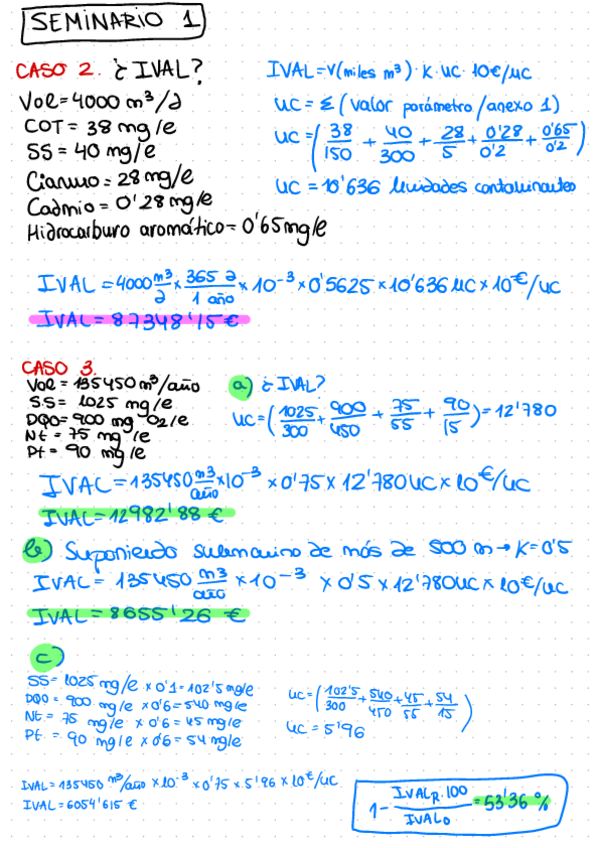 SEMINARIO 1
CASO 2. ¿IVAL?
Vol=4000 m³/d
COT= 38 mg/l
SS= 40 mg/l
Cianuro= 28 mg/l
Cadmio= 0'28 mg/l
Hidrocarburo aromático= 0'65 mg/l
IVAL=V(miles m³)·K·UC·10€/UC
UC= Σ(valor parámetro/anexo 1)
UC=(38/150 + 40/300 + 28/5 + 0'28/0'2 + 0'65/0'2)
UC= 10'636 Unidades contaminantes
IVAL=4000 m³/d × 365 d/1 año × 10⁻³ × 0'5625 × 10'636 UC × 10 €/UC
IVAL= 87348'15 €
CASO 3.
Vol= 135450 m³/año
SS= 1025 mg/l
DQO= 900 mg O₂/l
Nt= 75 mg/l
Pt= 90 mg/l
a) ¿IVAL?
UC=(1025/300 + 900/450 + 75/55 + 90/15)= 12'780
IVAL=135450 m³/año ×10⁻³ × 0'75 × 12'780 UC × 10 €/UC
IVAL= 12982'88 €
b) Suponiendo submarino de más de 500 m → K= 0'5
IVAL= 135450 m³/año × 10⁻³ × 0'5 × 12'780UC × 10 €/UC
IVAL= 8655'26 €
c)
SS= 1025 mg/l × 0'1= 102'5 mg/l
DQO= 900 mg/l × 0'6= 540 mg/l
Nt= 75 mg/l × 0'6= 45 mg/l
Pt= 90 mg/l × 0'6= 54 mg/l
UC=(102'5/300 + 540/450 + 45/55 + 54/15)
UC= 5'96
IVAL= 135450 m³/año × 10⁻³ × 0'75 × 5'96 × 10 €/UC
IVAL= 6054'615 €
1- IVALR·100/IVAL0 = 53'36 %